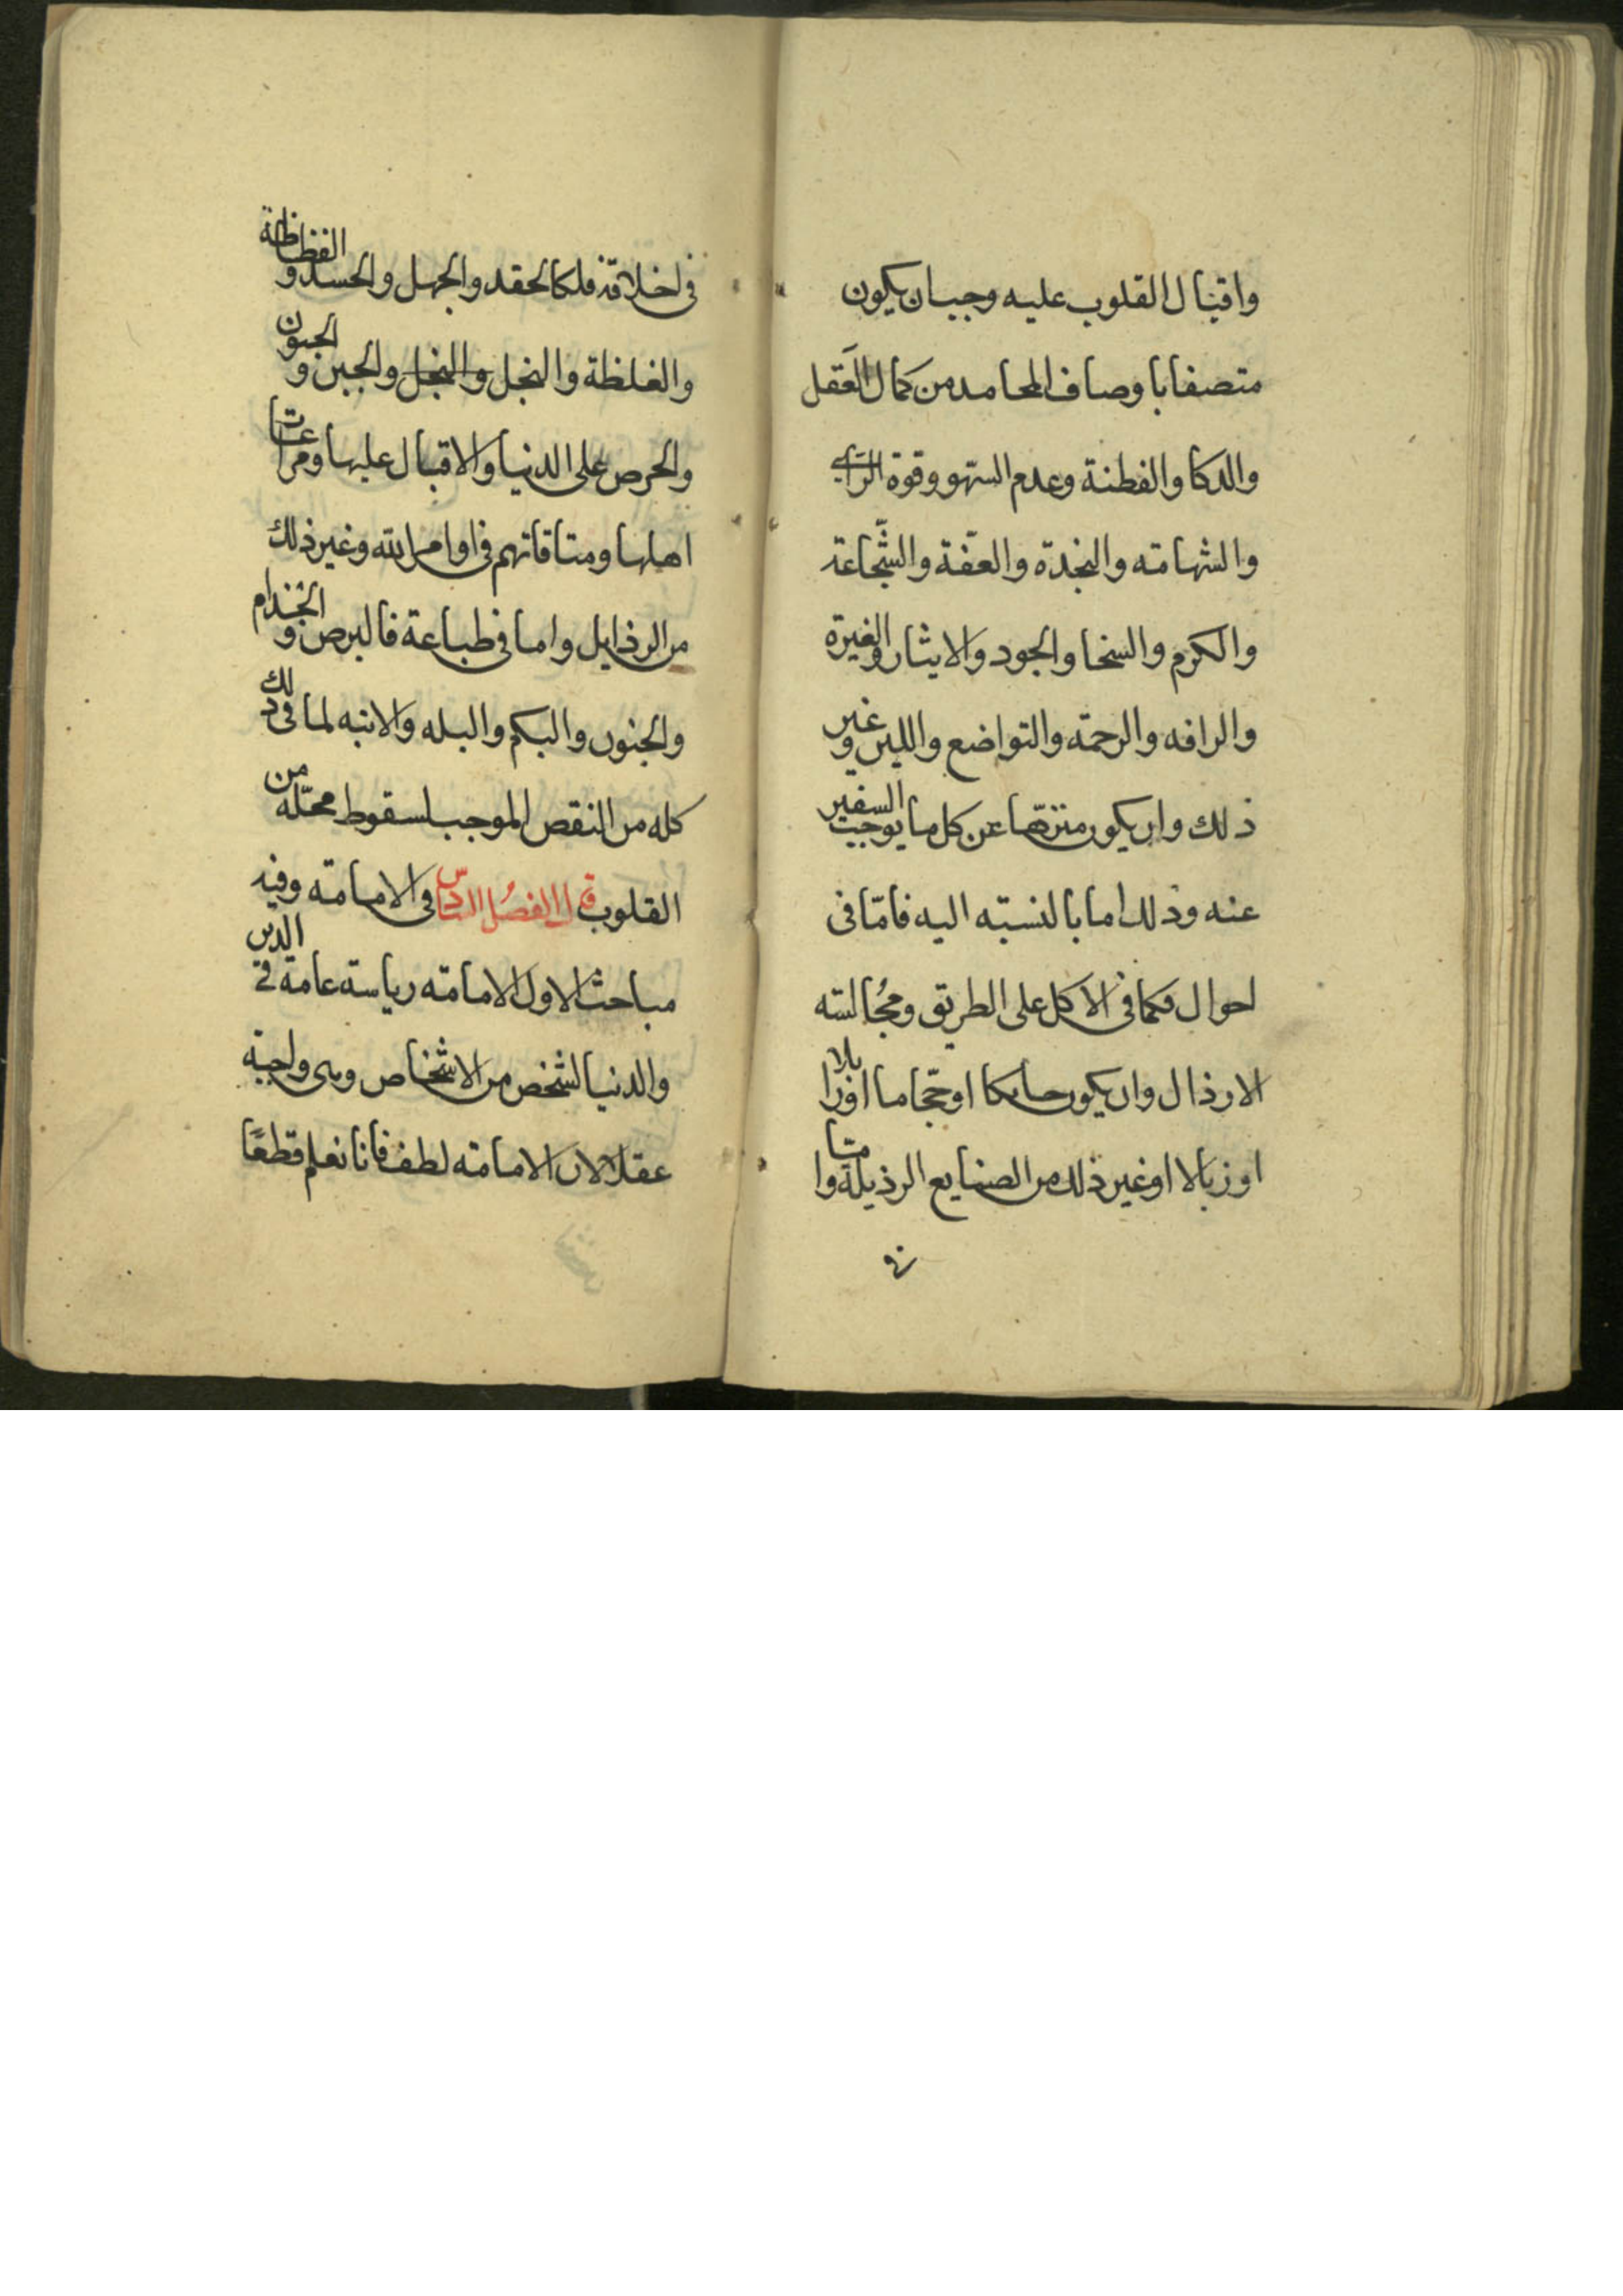 واقبال القلوب عليه وجب ان يكون
متصفا باوصاف المحامد من كمال العقل
والدكا والفطنة وعدم السهو وقوة الراي
والشهامته والنجدة والعفة والشجاعة
والكرم والسخا والجود والايثار والغيرة
والرافه والرحمة والتواضع واللين وغير
ذلك وان يكون منزها عن كل ما يوجب السفير
عنه وذلك اما بالنسبته اليه فامّا فى
احوال فكما فى الاكل على الطريق ومُجالسته
الارذال وان يكون حايكا او حجّاما او زبالا
او زبالا او غير ذلك من الصنايع الرذيلة واما
فى
فى اخلاقه فلكالحقد والجهل والحسد والفظاظة
والغلظة والبخل والبخل والجبن والجنون
والحرص على الدنيا والاقبال عليها ومراعات
اهلها ومتاقاتهم فى اوامر الله وغير ذلك
من الرذايل واما فى طباعة فالبرص والجذام
والجنون والبكم والبله والابنه لما فى ذلك
كله من النقص الموجب لسقوط محلّه من
القلوب قال الفصل السّادس فى الامامته وفيه
مباحث الاول الامامته رياسته عامة فى الدين
والدنيا لشخص من الاشخاص وهى واجبة
عقلا لان الامامته لطف فانا نعلم قطعًا